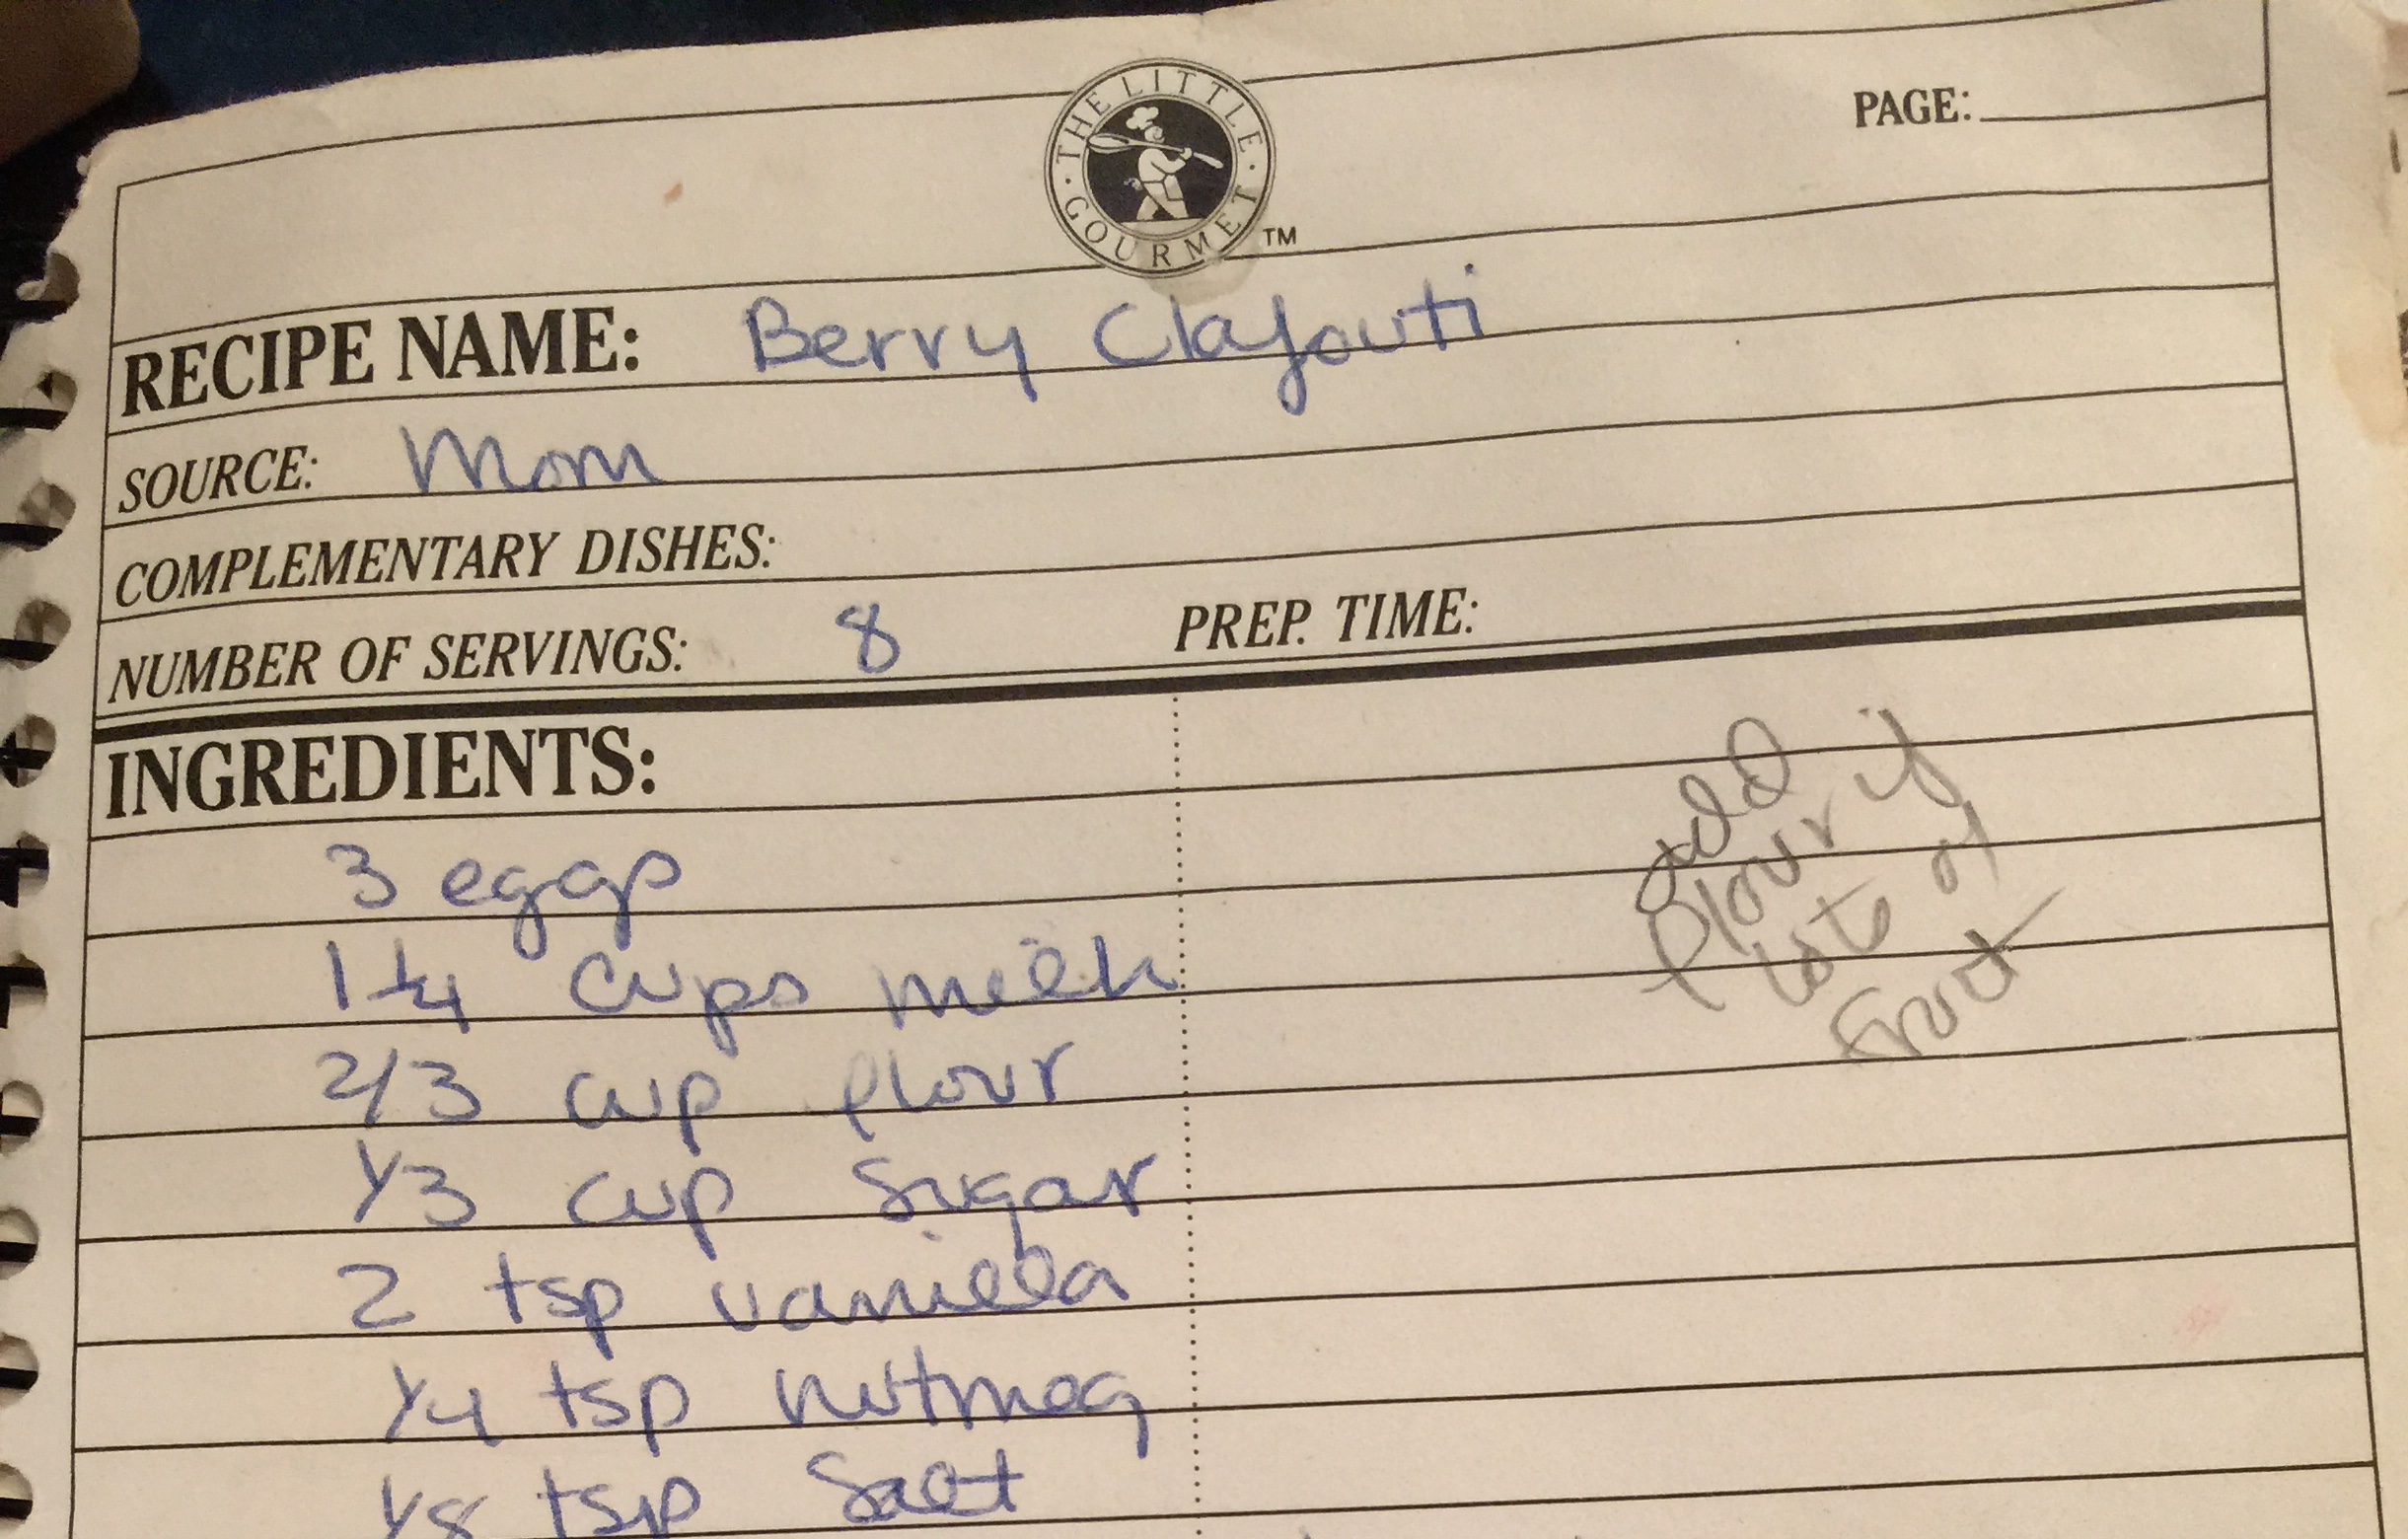 THE LITTLE GOURMET TM
PAGE:
RECIPE NAME: Berry Clafouti
SOURCE: Mom
COMPLEMENTARY DISHES:
NUMBER OF SERVINGS: 8 PREP. TIME:
INGREDIENTS:
3 eggs
1 1/4 cups milk
2/3 cup flour
1/3 cup sugar
2 tsp vanilla
1/4 tsp nutmeg
1/8 tsp salt
add
flour if
lots of
fruit